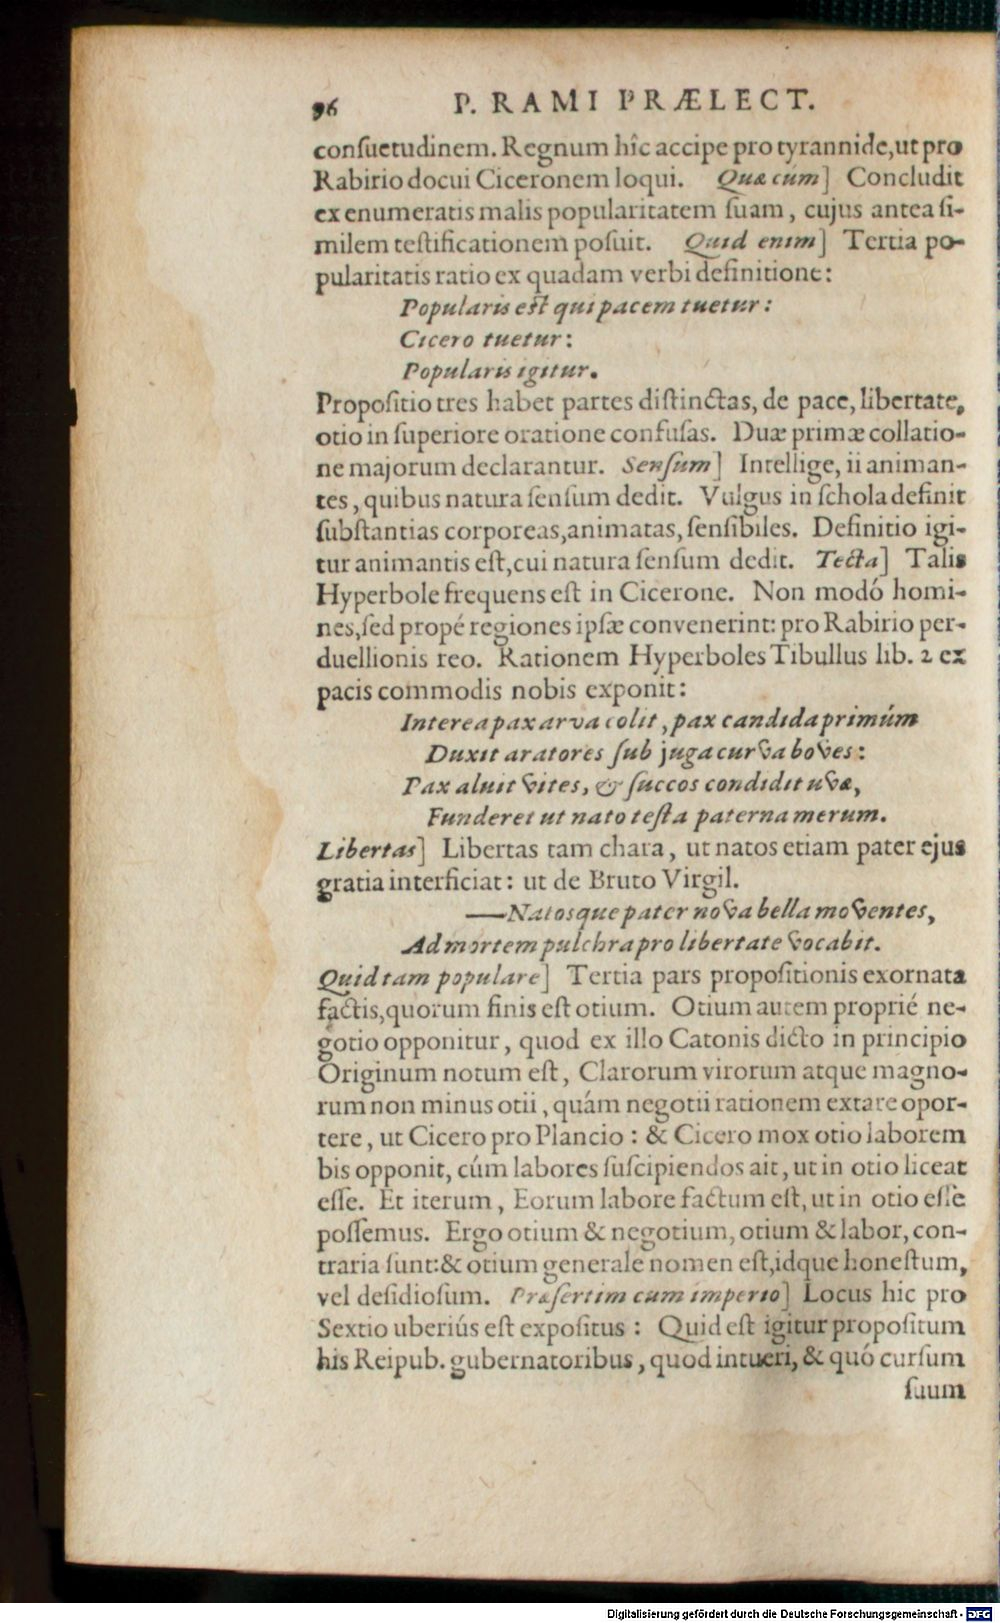 96 P. RAMI PRÆLECT.
conſuetudinem. Regnum hîc accipe pro tyrannide, ut pro
Rabirio docui Ciceronem loqui. Quæ cúm] Concludit
ex enumeratis malis popularitatem ſuam, cujus antea ſi-
milem teſtificationem poſuit. Quid enim] Tertia po-
pularitatis ratio ex quadam verbi definitione:
Popularis eſt qui pacem tuetur:
Cicero tuetur:
Popularis igitur.
Propoſitio tres habet partes diſtinctas, de pace, libertate,
otio in ſuperiore oratione confuſas. Duæ primæ collatio-
ne majorum declarantur. Senſum] Intellige, ii animan-
tes, quibus natura ſenſum dedit. Vulgus in ſchola definit
ſubſtantias corporeas, animatas, ſenſibiles. Definitio igi-
tur animantis eſt, cui natura ſenſum dedit. Tecta] Talis
Hyperbole frequens eſt in Cicerone. Non modó homi-
nes, ſed propé regiones ipſæ convenerint: pro Rabirio per-
duellionis reo. Rationem Hyperboles Tibullus lib. 2 ex
pacis commodis nobis exponit:
Interea pax arva colit, pax candida primúm
Duxit aratores ſub juga curva boves:
Pax aluit vites, & ſuccos condidit uvæ,
Funderet ut nato teſta paterna merum.
Libertas] Libertas tam chara, ut natos etiam pater ejus
gratia interficiat: ut de Bruto Virgil.
—Natosque pater nova bella moventes,
Ad mortem pulchra pro libertate vocabit.
Quid tam populare] Tertia pars propoſitionis exornata
factis, quorum finis eſt otium. Otium autem proprié ne-
gotio opponitur, quod ex illo Catonis dicto in principio
Originum notum eſt, Clarorum virorum atque magno-
rum non minus otii, quám negotii rationem extare opor-
tere, ut Cicero pro Plancio: & Cicero mox otio laborem
bis opponit, cúm labores ſuſcipiendos ait, ut in otio liceat
eſſe. Et iterum, Eorum labore factum eſt, ut in otio eſſe
poſſemus. Ergo otium & negotium, otium & labor, con-
traria ſunt: & otium generale nomen eſt, idque honeſtum,
vel deſidioſum. Præſertim cum imperio] Locus hic pro
Sextio uberiús eſt expoſitus: Quid eſt igitur propoſitum
his Reipub. gubernatoribus, quod intueri, & quó curſum
ſuum
Digitalisierung gefördert durch die Deutsche Forschungsgemeinschaft - DFG